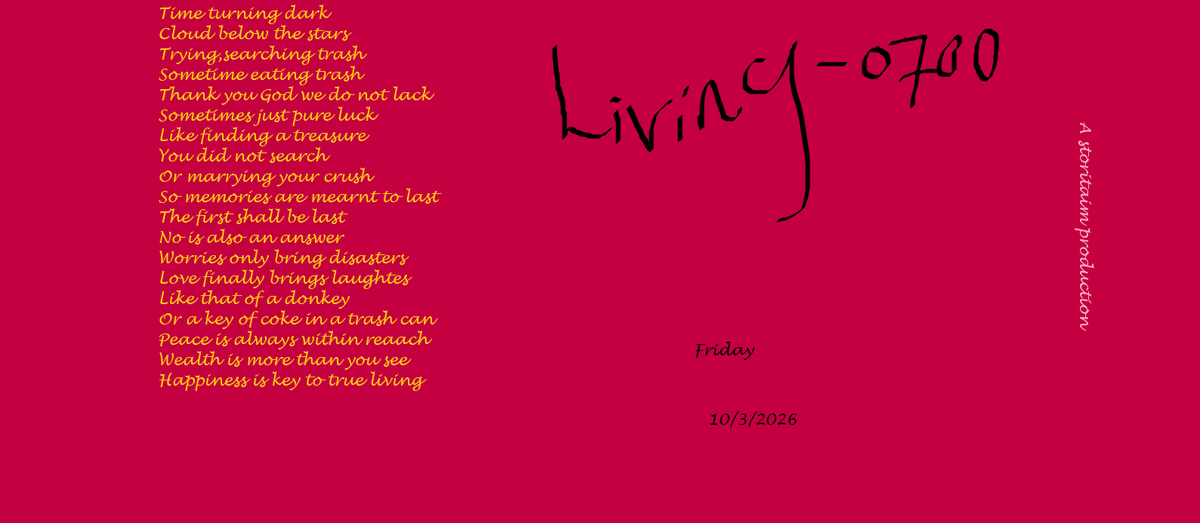 Time turning dark
Cloud below the stars
Trying,searching trash
Sometime eating trash
Thank you God we do not lack
Sometimes just pure luck
Like finding a treasure
You did not search
Or marrying your crush
So memories are mearnt to last
The first shall be last
No is also an answer
Worries only bring disasters
Love finally brings laughtes
Like that of a donkey
Or a key of coke in a trash can
Peace is always within reaach
Wealth is more than you see
Happiness is key to true living
Living-0700
A storitaim production
Friday
10/3/2026